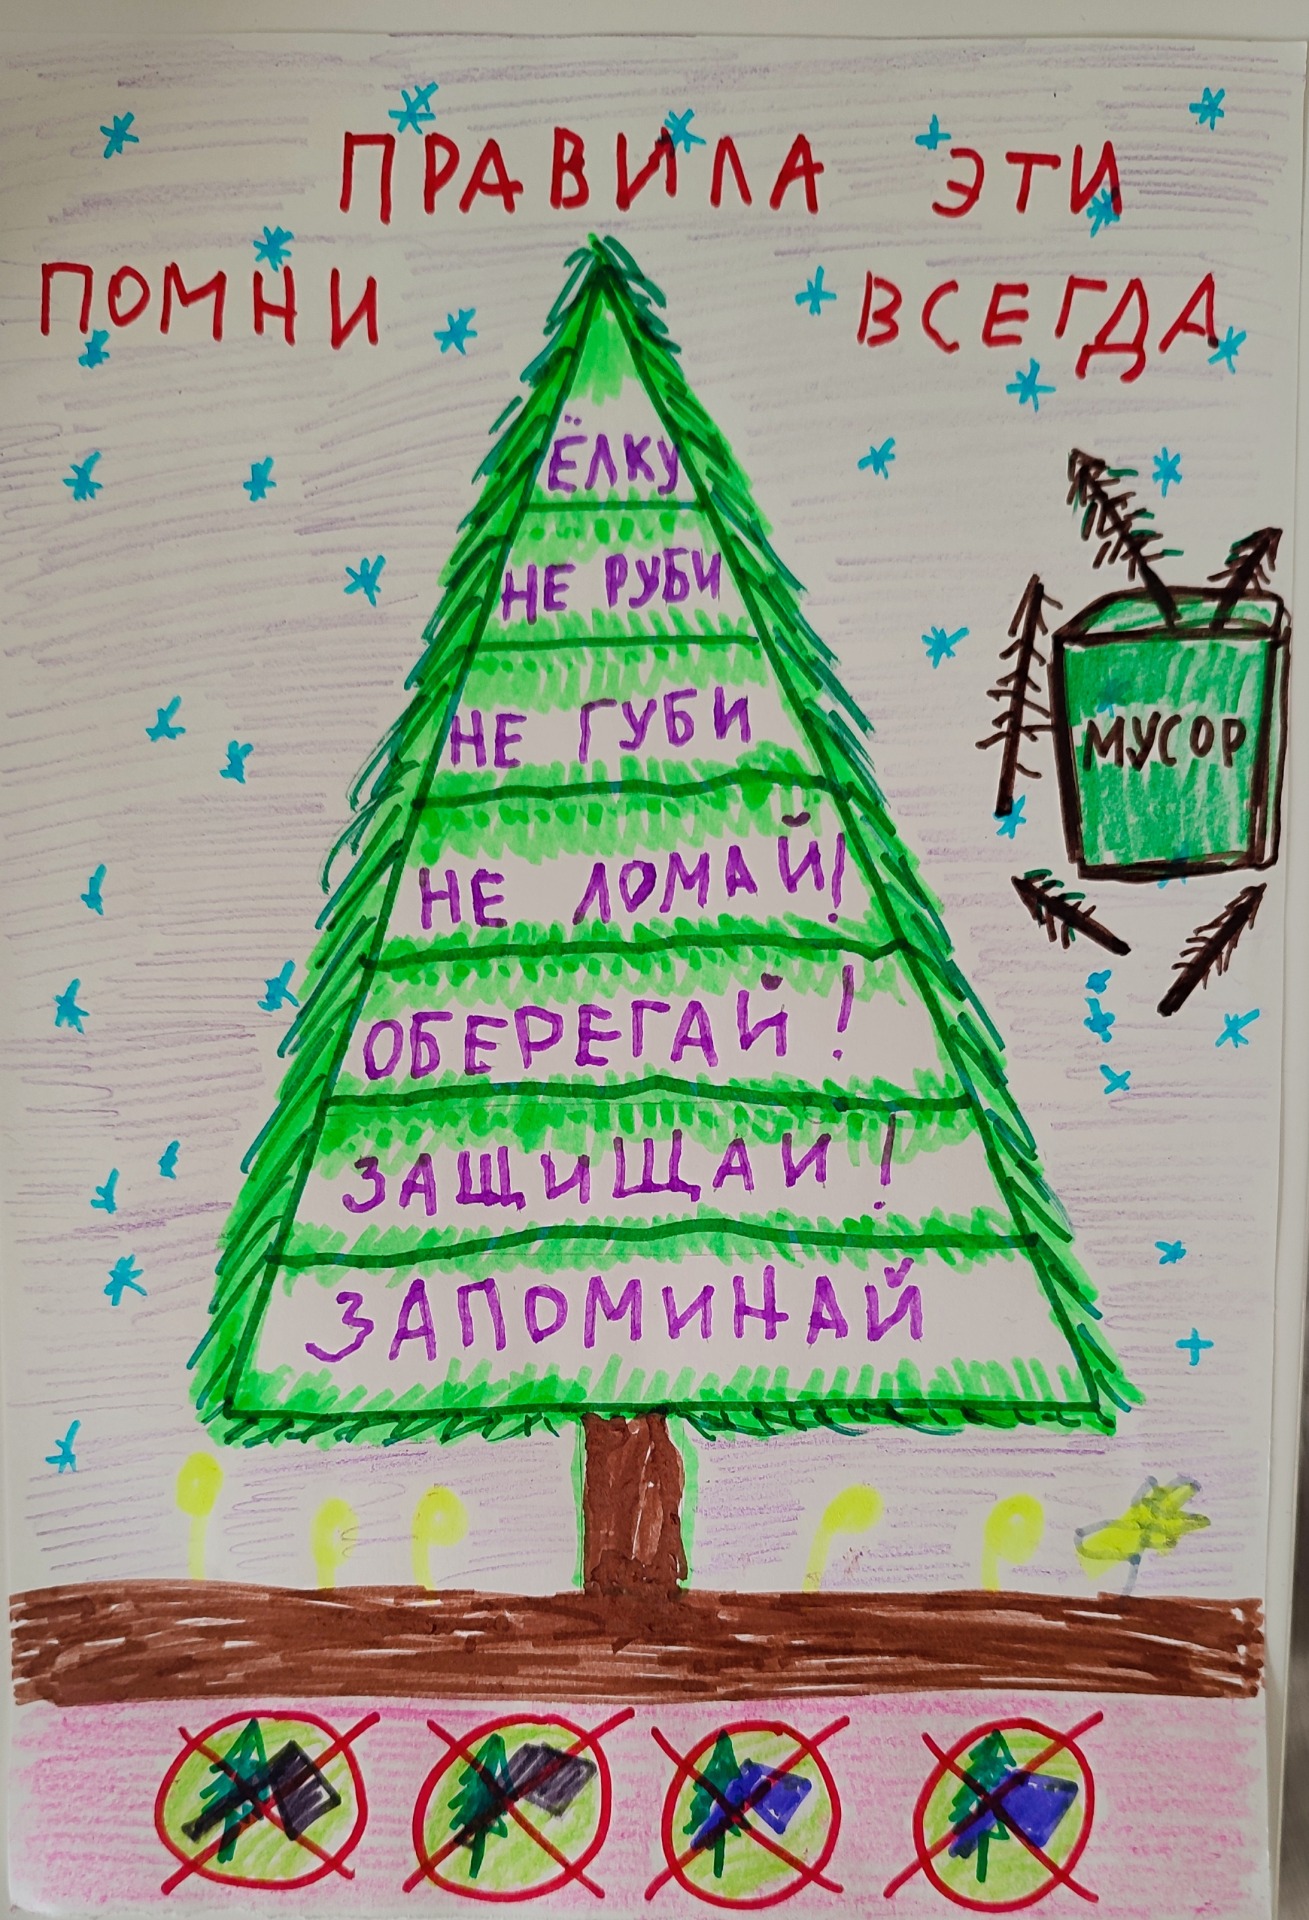 ПРАВИЛА ЭТИ
ПОМНИ ВСЕГДА
ЁЛКУ
НЕ РУБИ
НЕ ГУБИ
НЕ ЛОМАЙ!
ОБЕРЕГАЙ!
ЗАЩИЩАЙ!
ЗАПОМИНАЙ
МУСОР